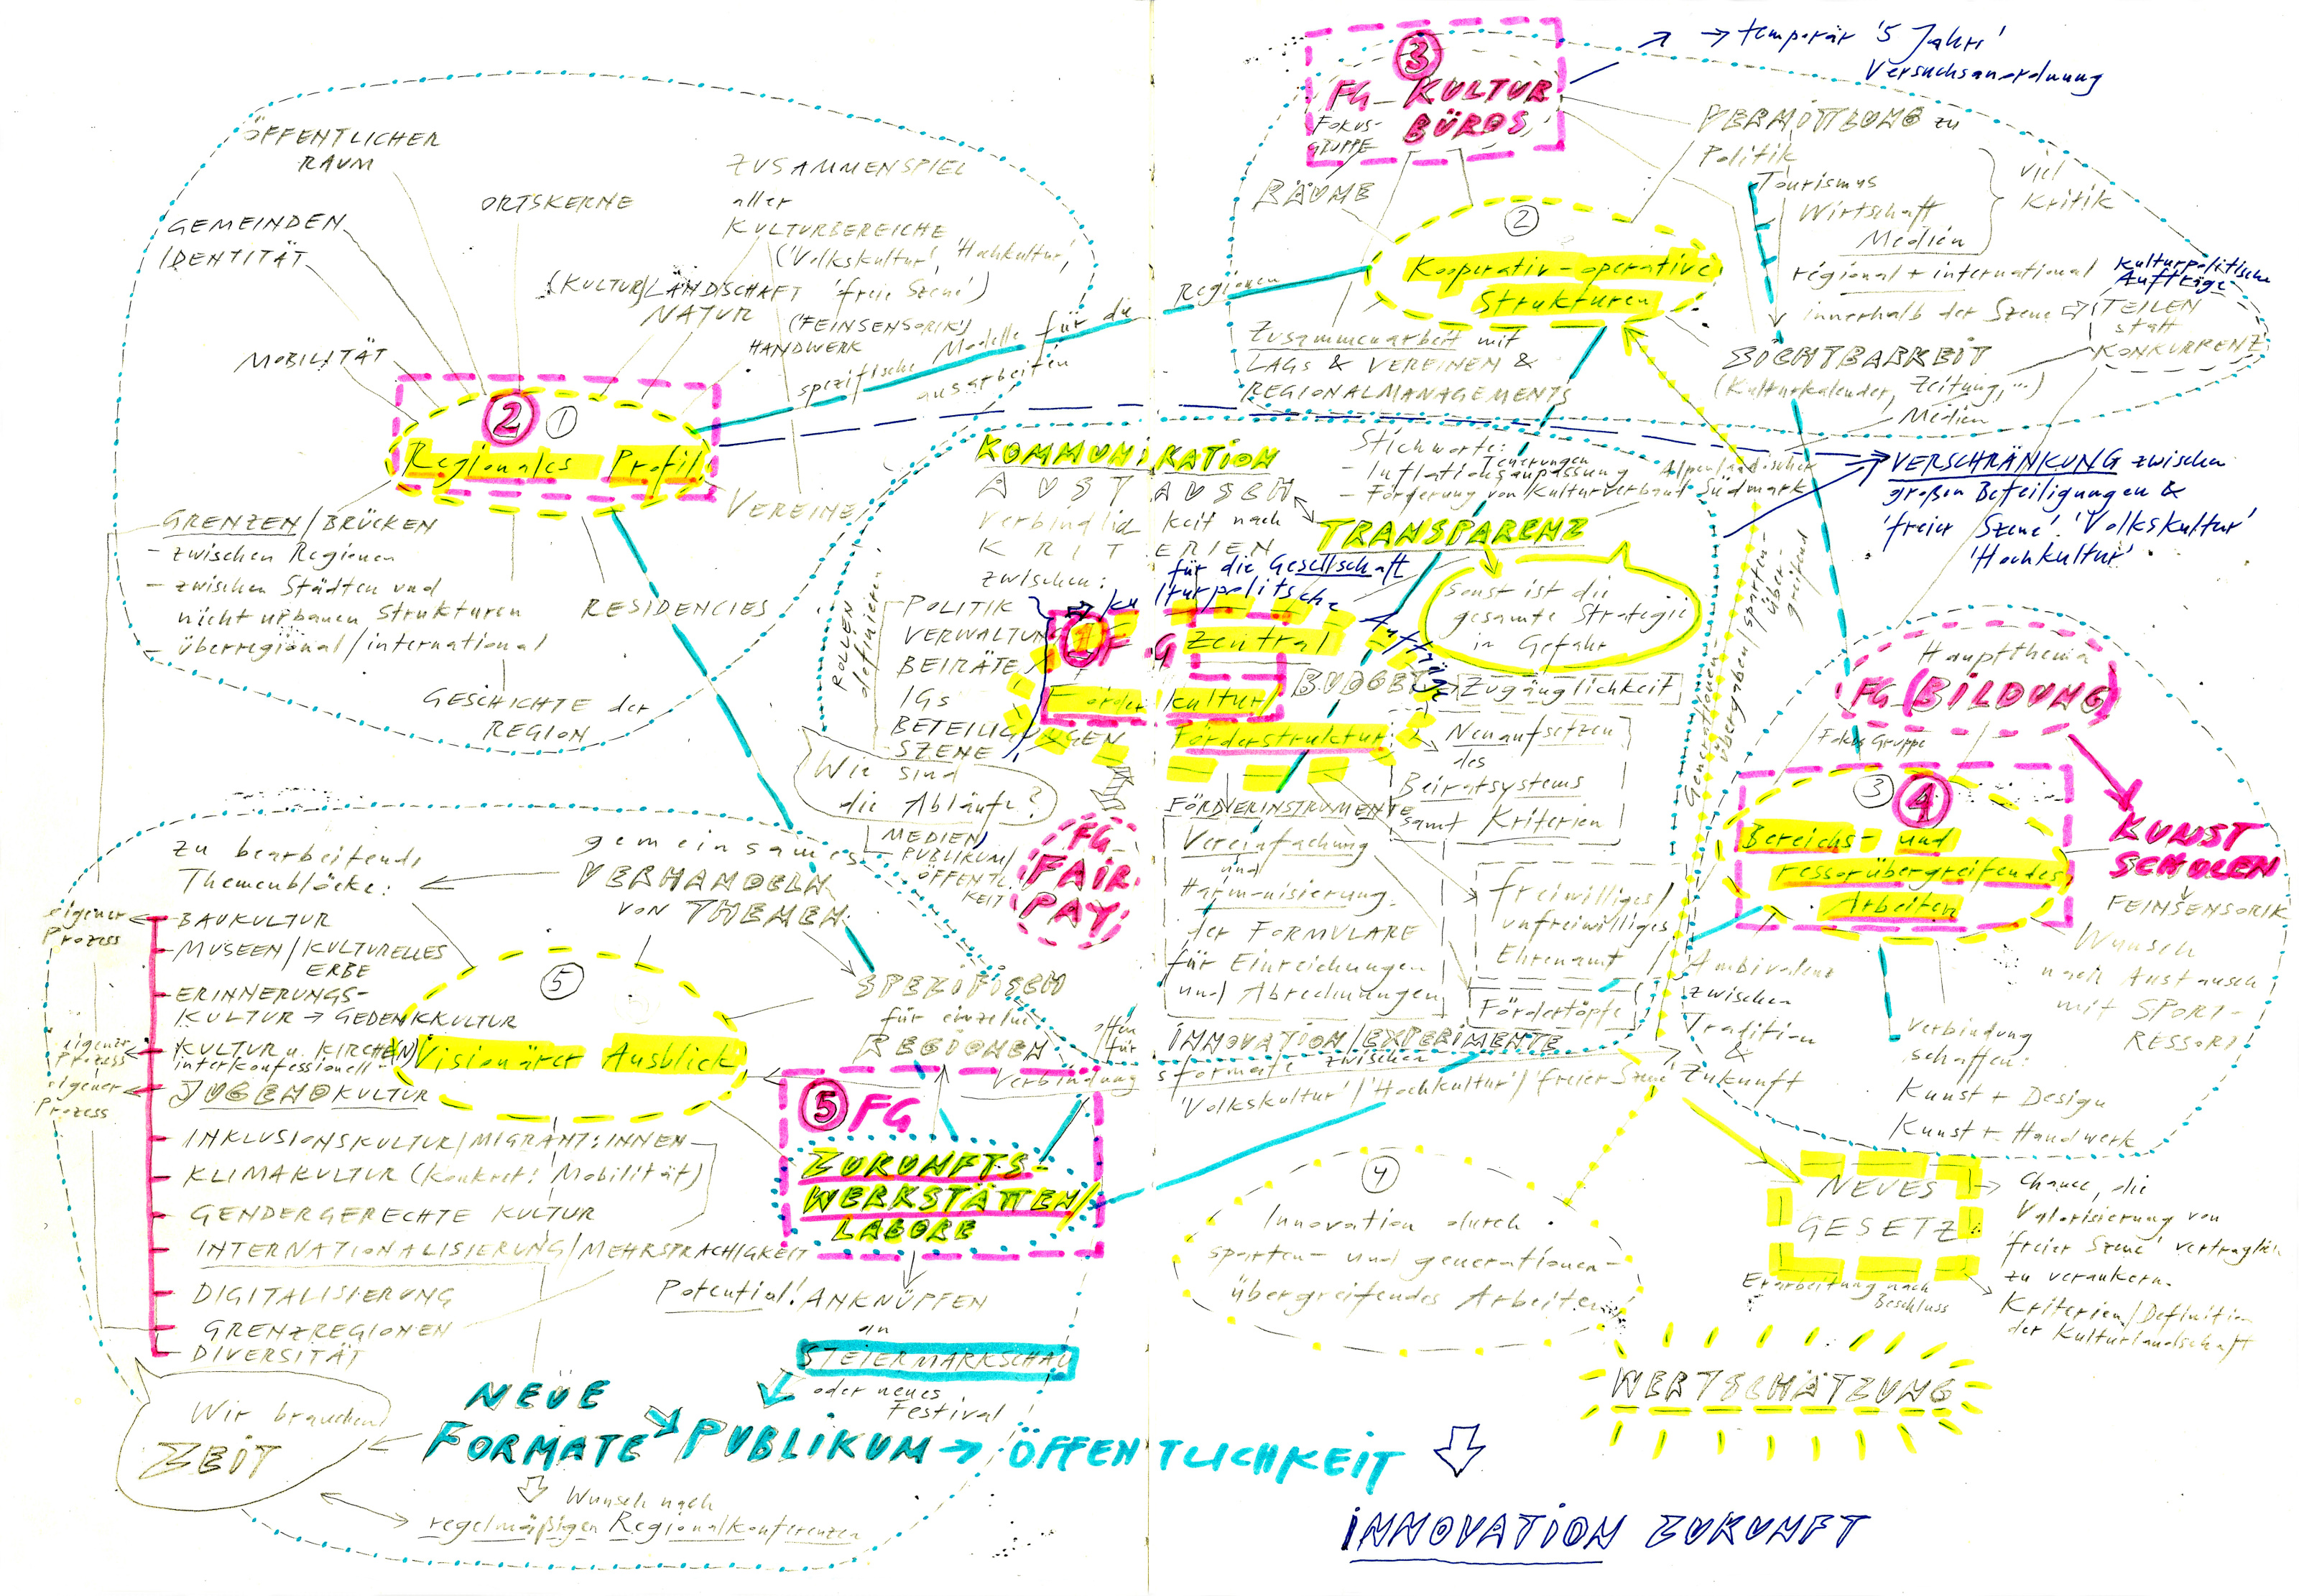 ÖFFENTLICHER
RAUM
GEMEINDEN
IDENTITÄT
ORTSKERNE
ZUSAMMENSPIEL
aller
KULTURBEREICHE
('Volkskultur', 'Hochkultur',
'freie Szene')
(KULTUR/LANDSCHAFT
NATUR
('FEINSENSORIK')
HANDWERK
MOBILITÄT
② ①
Regionales Profil
spezifische Modelle für die
Regionen
ausarbeiten
VEREINE
GRENZEN/BRÜCKEN
- zwischen Regionen
- zwischen Städten und
nicht urbanen Strukturen
- überregional/international
RESIDENCIES
GESCHICHTE der
REGION
③
FG_KULTUR
BÜROS
FOKUS-
GRUPPE
→ temporär '5 Jahre'
Versuchsanordnung
VERMITTLUNG zu
Politik
Tourismus
Wirtschaft
Medien
viel
Kritik
regional + international
innerhalb der Szene
kulturpolitische
Aufträge
TEILEN
statt
KONKURRENZ
RÄUME
②
Kooperativ-operative
Strukturen
Zusammenarbeit mit
LAGs & VEREINEN &
REGIONALMANAGEMENTS
SICHTBARKEIT
(Kulturkalender, Zeitung, ...)
Medien
VERSCHRÄNKUNG zwischen
großen Beteiligungen &
'freier Szene'. 'Volkskultur'
'Hochkultur'
KOMMUNIKATION
AUSTAUSCH
Verbindlichkeit nach
KRITERIEN
zwischen:
POLITIK
VERWALTUNG
BEIRÄTE
IGs
BETEILIGUNGEN
SZENE
ROLLEN
definieren
Wie sind
die Abläufe?
MEDIEN/
PUBLIKUM/
ÖFFENTL.
KEIT
Stichworte:
Teuerungen
- Inflationsanpassung
- Förderung von Kulturverband Südmark
Alpenländischer
TRANSPARENZ
für die Gesellschaft
kulturpolitische
Aufträge
sonst ist die
gesamte Strategie
in Gefahr
① FG zentral
Förderkultur/
Förderstruktur
BUDGET
Zugänglichkeit
Neuaufsetzen
des
Beiratsystems
samt Kriterien
FG
FAIR
PAY
FÖRDERINSTRUMENTE
Vereinfachung
und
Harmonisierung
der FORMULARE
für Einreichungen
und Abrechnungen
freiwilliges/
unfreiwilliges
Ehrenamt
Fördertöpfe
INNOVATION/EXPERIMENTE
offen
für
Verbindungsformate zwischen
'Volkskultur'/'Hochkultur'/'freier Szene'
Generationen-
übergreifend/sparten-
über-
greifend
Hauptthema
FG (BILDUNG)
Fokus Gruppe
③ ④
Bereichs- und
ressortübergreifendes
Arbeiten
KUNST
SCHULEN
FEINSENSORIK
Wunsch
nach Austausch
mit SPORT-
RESSORT
Ambivalenz
zwischen
Tradition
&
Zukunft
Verbindung
schaffen:
Kunst + Design
Kunst + Handwerk
zu bearbeitende
Themenblöcke:
gemeinsames
VERHANDELN
von THEMEN
eigener
Prozess
BAUKULTUR
MUSEEN/KULTURELLES
ERBE
ERINNERUNGS-
KULTUR → GEDENKKULTUR
eigener
Prozess
KULTUR u. KIRCHEN
interkonfessionell
eigener
Prozess
JUGENDKULTUR
INKLUSIONSKULTUR/MIGRANT:INNEN
KLIMAKULTUR (konkret: Mobilität)
GENDERGERECHTE KULTUR
INTERNATIONALISIERUNG/MEHRSPRACHIGKEIT
DIGITALISIERUNG
GRENZREGIONEN
DIVERSITÄT
⑤
Visionärer Ausblick
SPEZIFISCH
für einzelne
REGIONEN
⑤ FG
ZUKUNFTS-
WERKSTÄTTEN/
LABORE
Potential! ANKNÜPFEN
an
STEIERMARKSCHAU
oder neues
Festival
Wir brauchen
ZEIT
NEUE
FORMATE PUBLIKUM → ÖFFENTLICHKEIT
Wunsch nach
regelmäßigen Regionalkonferenzen
④
Innovation durch
sparten- und generationen-
übergreifendes Arbeiten
NEUES
GESETZ
Erarbeitung nach
Beschluss
Chance, die
Valorisierung von
'freier Szene' vertraglich
zu verankern.
Kriterien/Definition
der Kulturlandschaft
WERTSCHÄTZUNG
INNOVATION ZUKUNFT